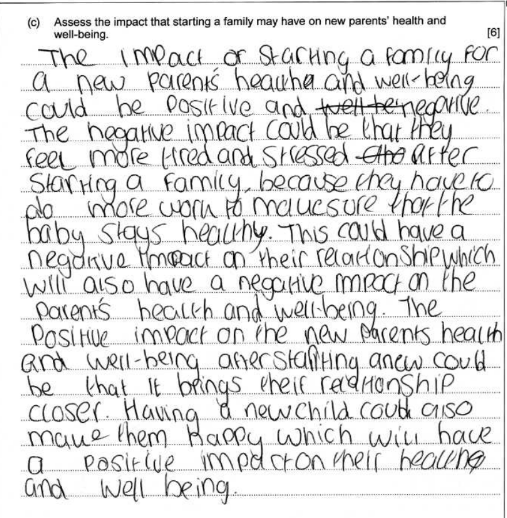 (c) Assess the impact that starting a family may have on new parents' health and
well-being. [6]
The impact of Starting a family for
a new parent's healthe and well-being
could be Positive and well-be negative.
The negative impact could be that they
feel more tired and Stressed the after
Starting a family, because they have to
do more work to make sure that the
baby stays healthy. This could have a
negative impact on their relationship which
will also have a negative impact on the
parent's health and well-being. The
Positive impact on the new parents health
and well-being after starting anew could
be that it brings their relationship
closer. Having a new child could also
make them Happy which will have
a positive impact on their healthe
and well being.